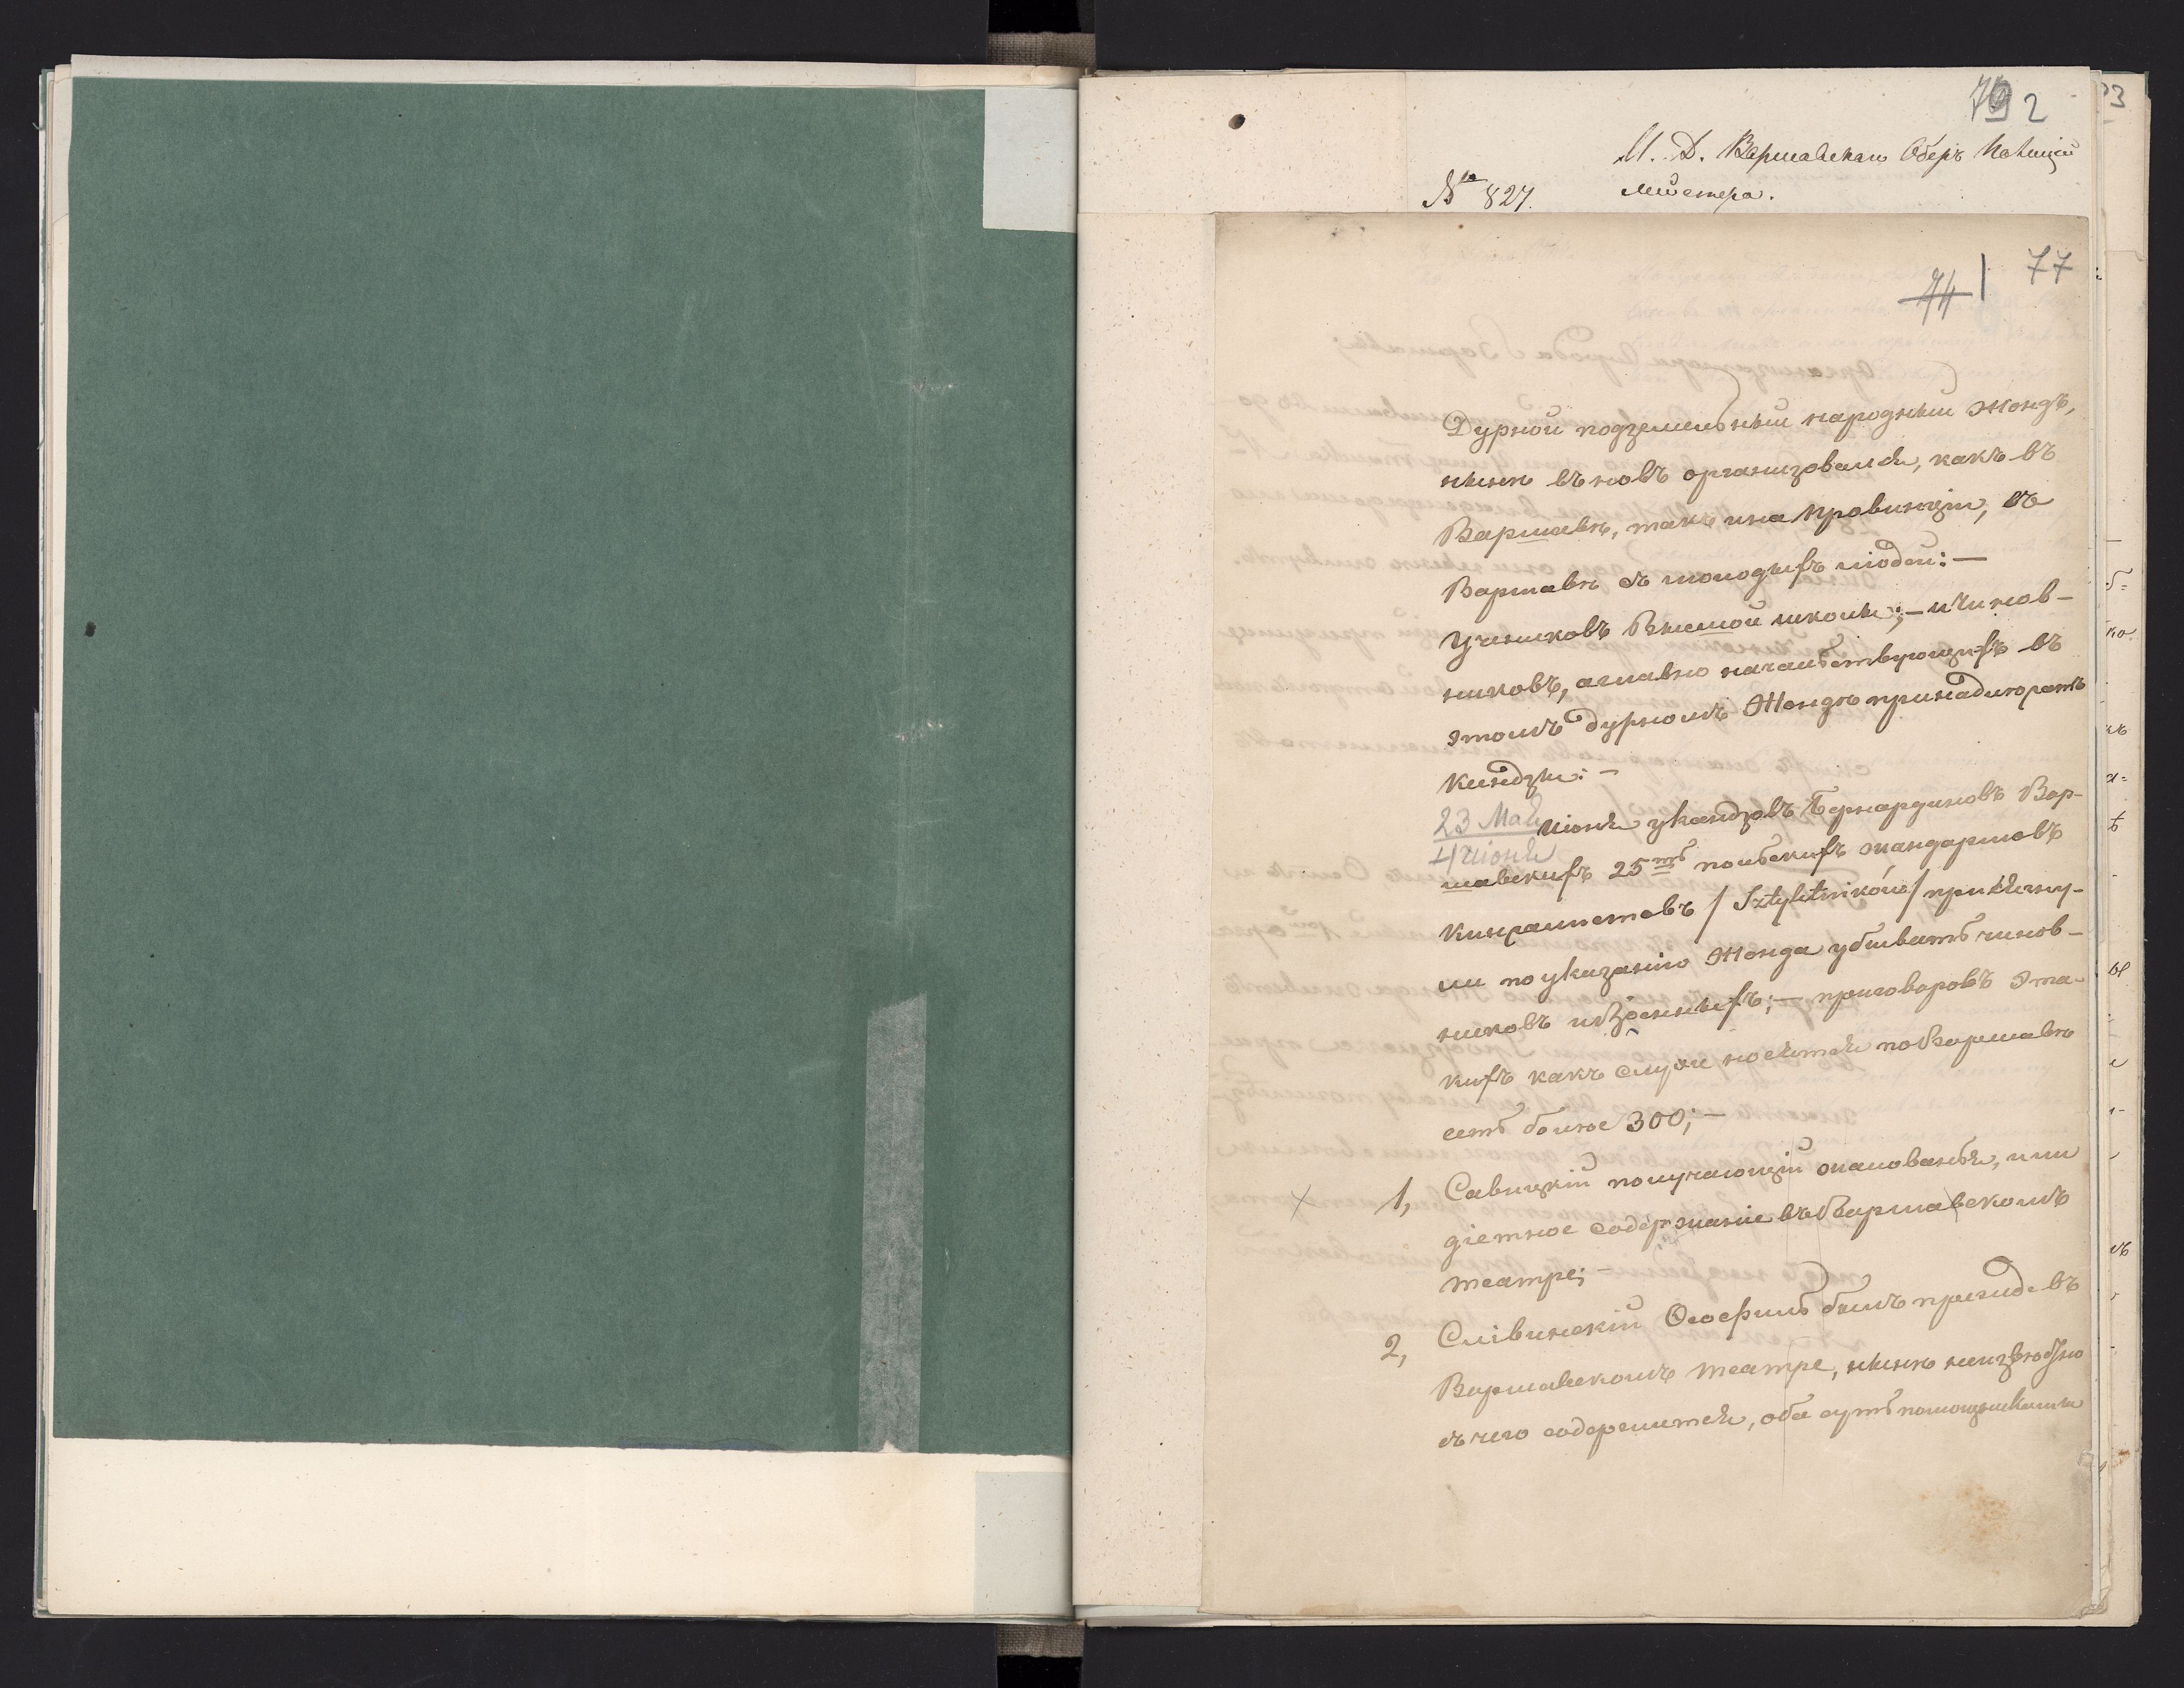 792
И. Д. Варшавскаго Оберъ Полицій
мейстера.
№ 827.
74 | 77
Дурной подземельный народный Жондъ,
нынѣ въновъ организовался, какъ въ
Варшавѣ, такъ ина провинціи, въ
Варшавѣ съ молодыхъ людей: —
Учениковъ Высшой школы; — и чинов-
никовъ, аглавно начальствующихъ въ
этомъ дурномъ Жондѣ принадлежатъ
Ксендзы: —
23 Мая
4 Іюня
Іюня уксендзовъ Бернардиновъ Вар-
шавскихъ 25ть польскихъ жандармовъ
кинжалистовъ / Sztyletników / присягну-
ли по указанію Жонда убивать чинов-
никовъ и военныхъ; — приговоровъ эта-
кихъ какъ слухи носятся по Варшавѣ
есть более 300; —
1, Савицкій получающій жалованья, или
діетное содержаніе въ Варшавскомъ
театре; —
2, Сливинскій Осефиль былъ прежде въ
Варшавскомъ театре, нынѣ неизвѣстно
съ чего содержится, оба суть помощниками